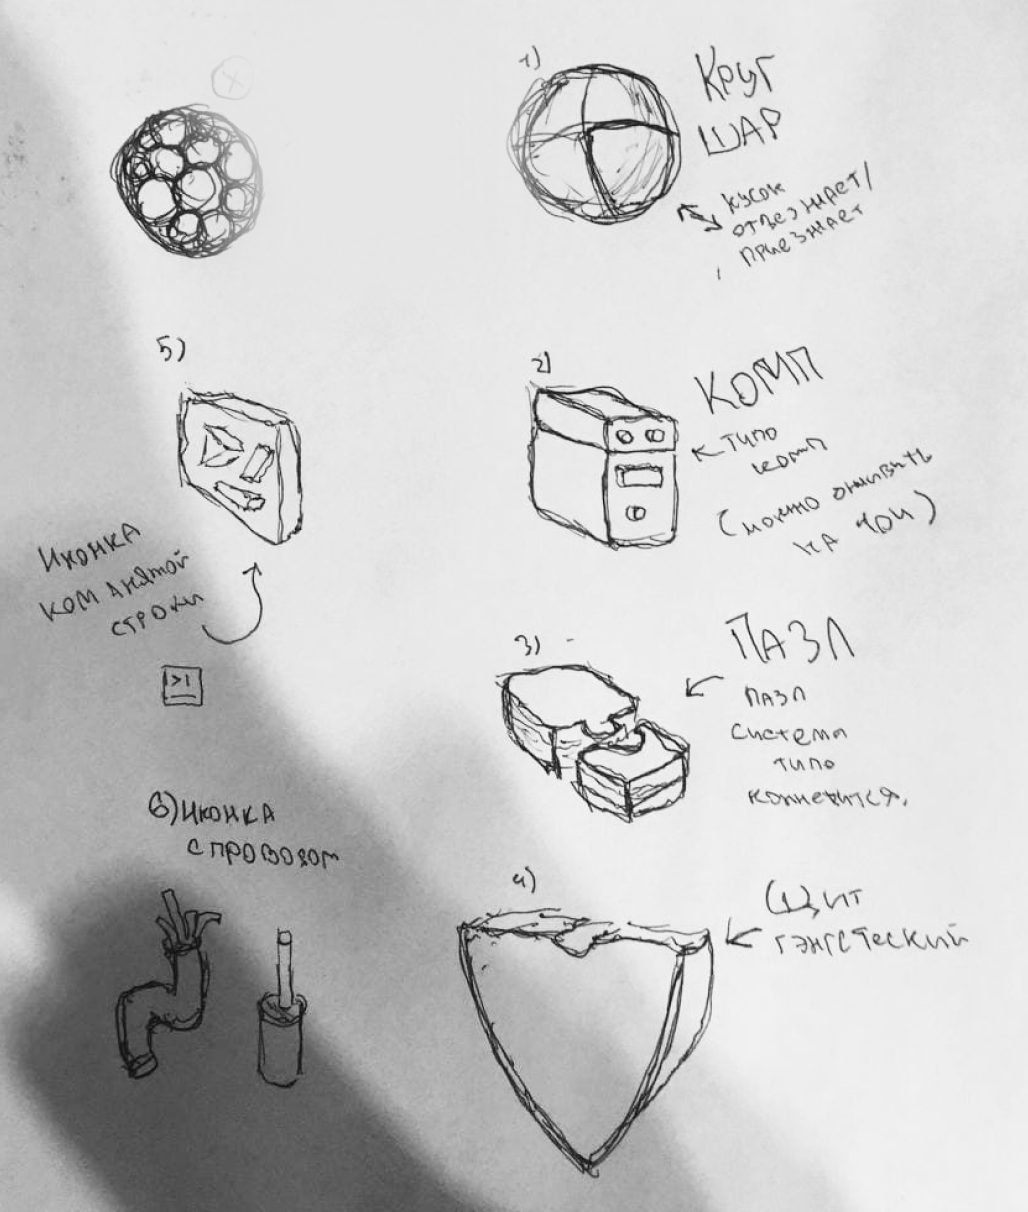 1)
Круг
шар
кусок
отъезжает/
приезжает
5)
2)
Комп
типо
комп
(можно оживить
на чői)
Иконка
командной
строки
>|
3)
Пазл
пазл
система
типо
коннектится.
6) иконка
с проводом
4)
Щит
гэнгстеский